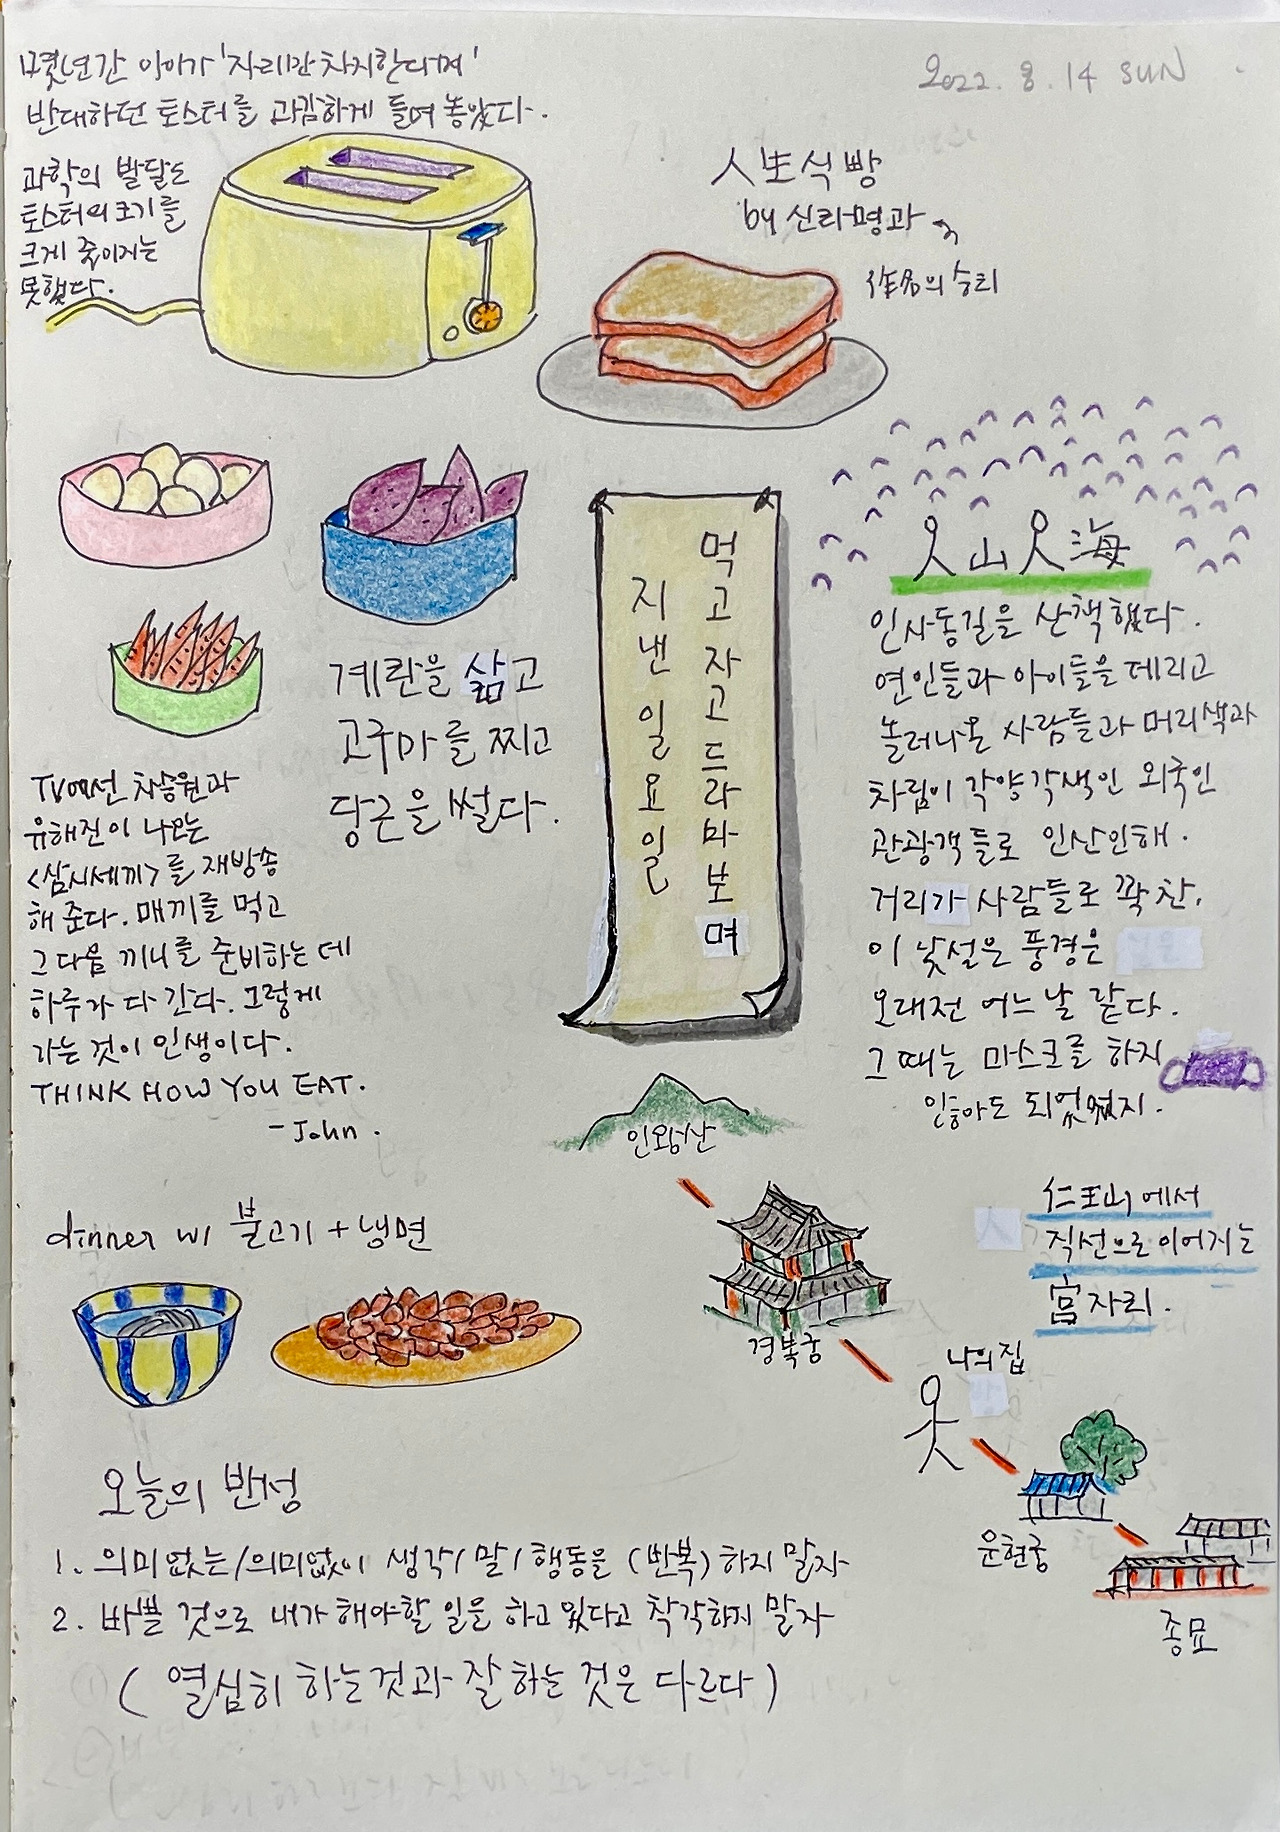 2022. 8. 14 SUN
몇년간 아이가 '자리만 차지한다며'
반대하던 토스터를 과감하게 들여 놓았다.
과학의 발달도
토스터의 크기를
크게 줄이지는
못했다.
人生식빵
by 신라명과
作名의 승리
계란을 삶고
고구마를 찌고
당근을 썰다.
먹고 자고 드라마 보며
지낸 일요일
人山人海
인사동길을 산책했다.
연인들과 아이들을 데리고
놀러나온 사람들과 머리색과
차림이 각양각색인 외국인
관광객들로 인산인해.
거리가 사람들로 꽉 찬,
이 낯설은 풍경은
오래전 어느날 같다.
그 때는 마스크를 하지
않아도 되었었지.
TV에선 차승원과
유해진이 나오는
<삼시세끼>를 재방송
해 준다. 매끼를 먹고
그 다음 끼니를 준비하는 데
하루가 다 간다. 그렇게
가는 것이 인생이다.
THINK HOW YOU EAT.
- John.
dinner w/ 불고기 + 냉면
인왕산
경복궁
나의 집
운현궁
종묘
仁王山에서
직선으로 이어지는
宮자리.
오늘의 반성
1. 의미없는/의미없이 생각/말/행동을 (반복)하지 말자
2. 바쁠 것으로 내가 해야할 일을 하고 있다고 착각하지 말자
(열심히 하는것과 잘 하는 것은 다르다)